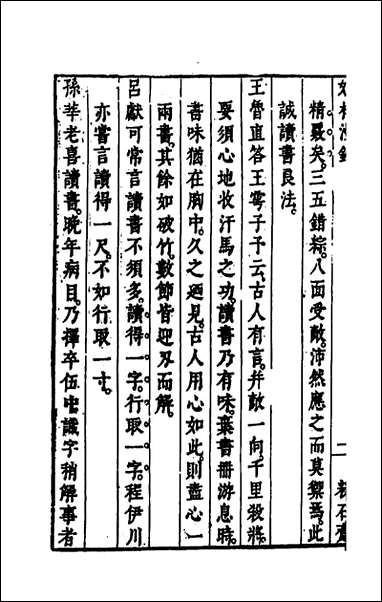 二
精覈矣。三五錯綜。八面受敵。沛然應之而莫禦焉。此
誠讀書良法。
王魯直答王雩子予云。古人有言。并敵一向。千里殺將。
要須心地收汗馬之功。讀書乃有味。棄書冊游息時。
書味猶在胸中。久之廼見。古人用心如此。則盡心一
兩書。其餘如破竹。數節皆迎刃而解。
呂獻可常言讀書不須多。讀得一字。行取一字。程伊川
亦嘗言讀得一尺。不如行取一寸。
孫莘老喜讀書。晚年病目。乃擇卒伍中識字稍解事者